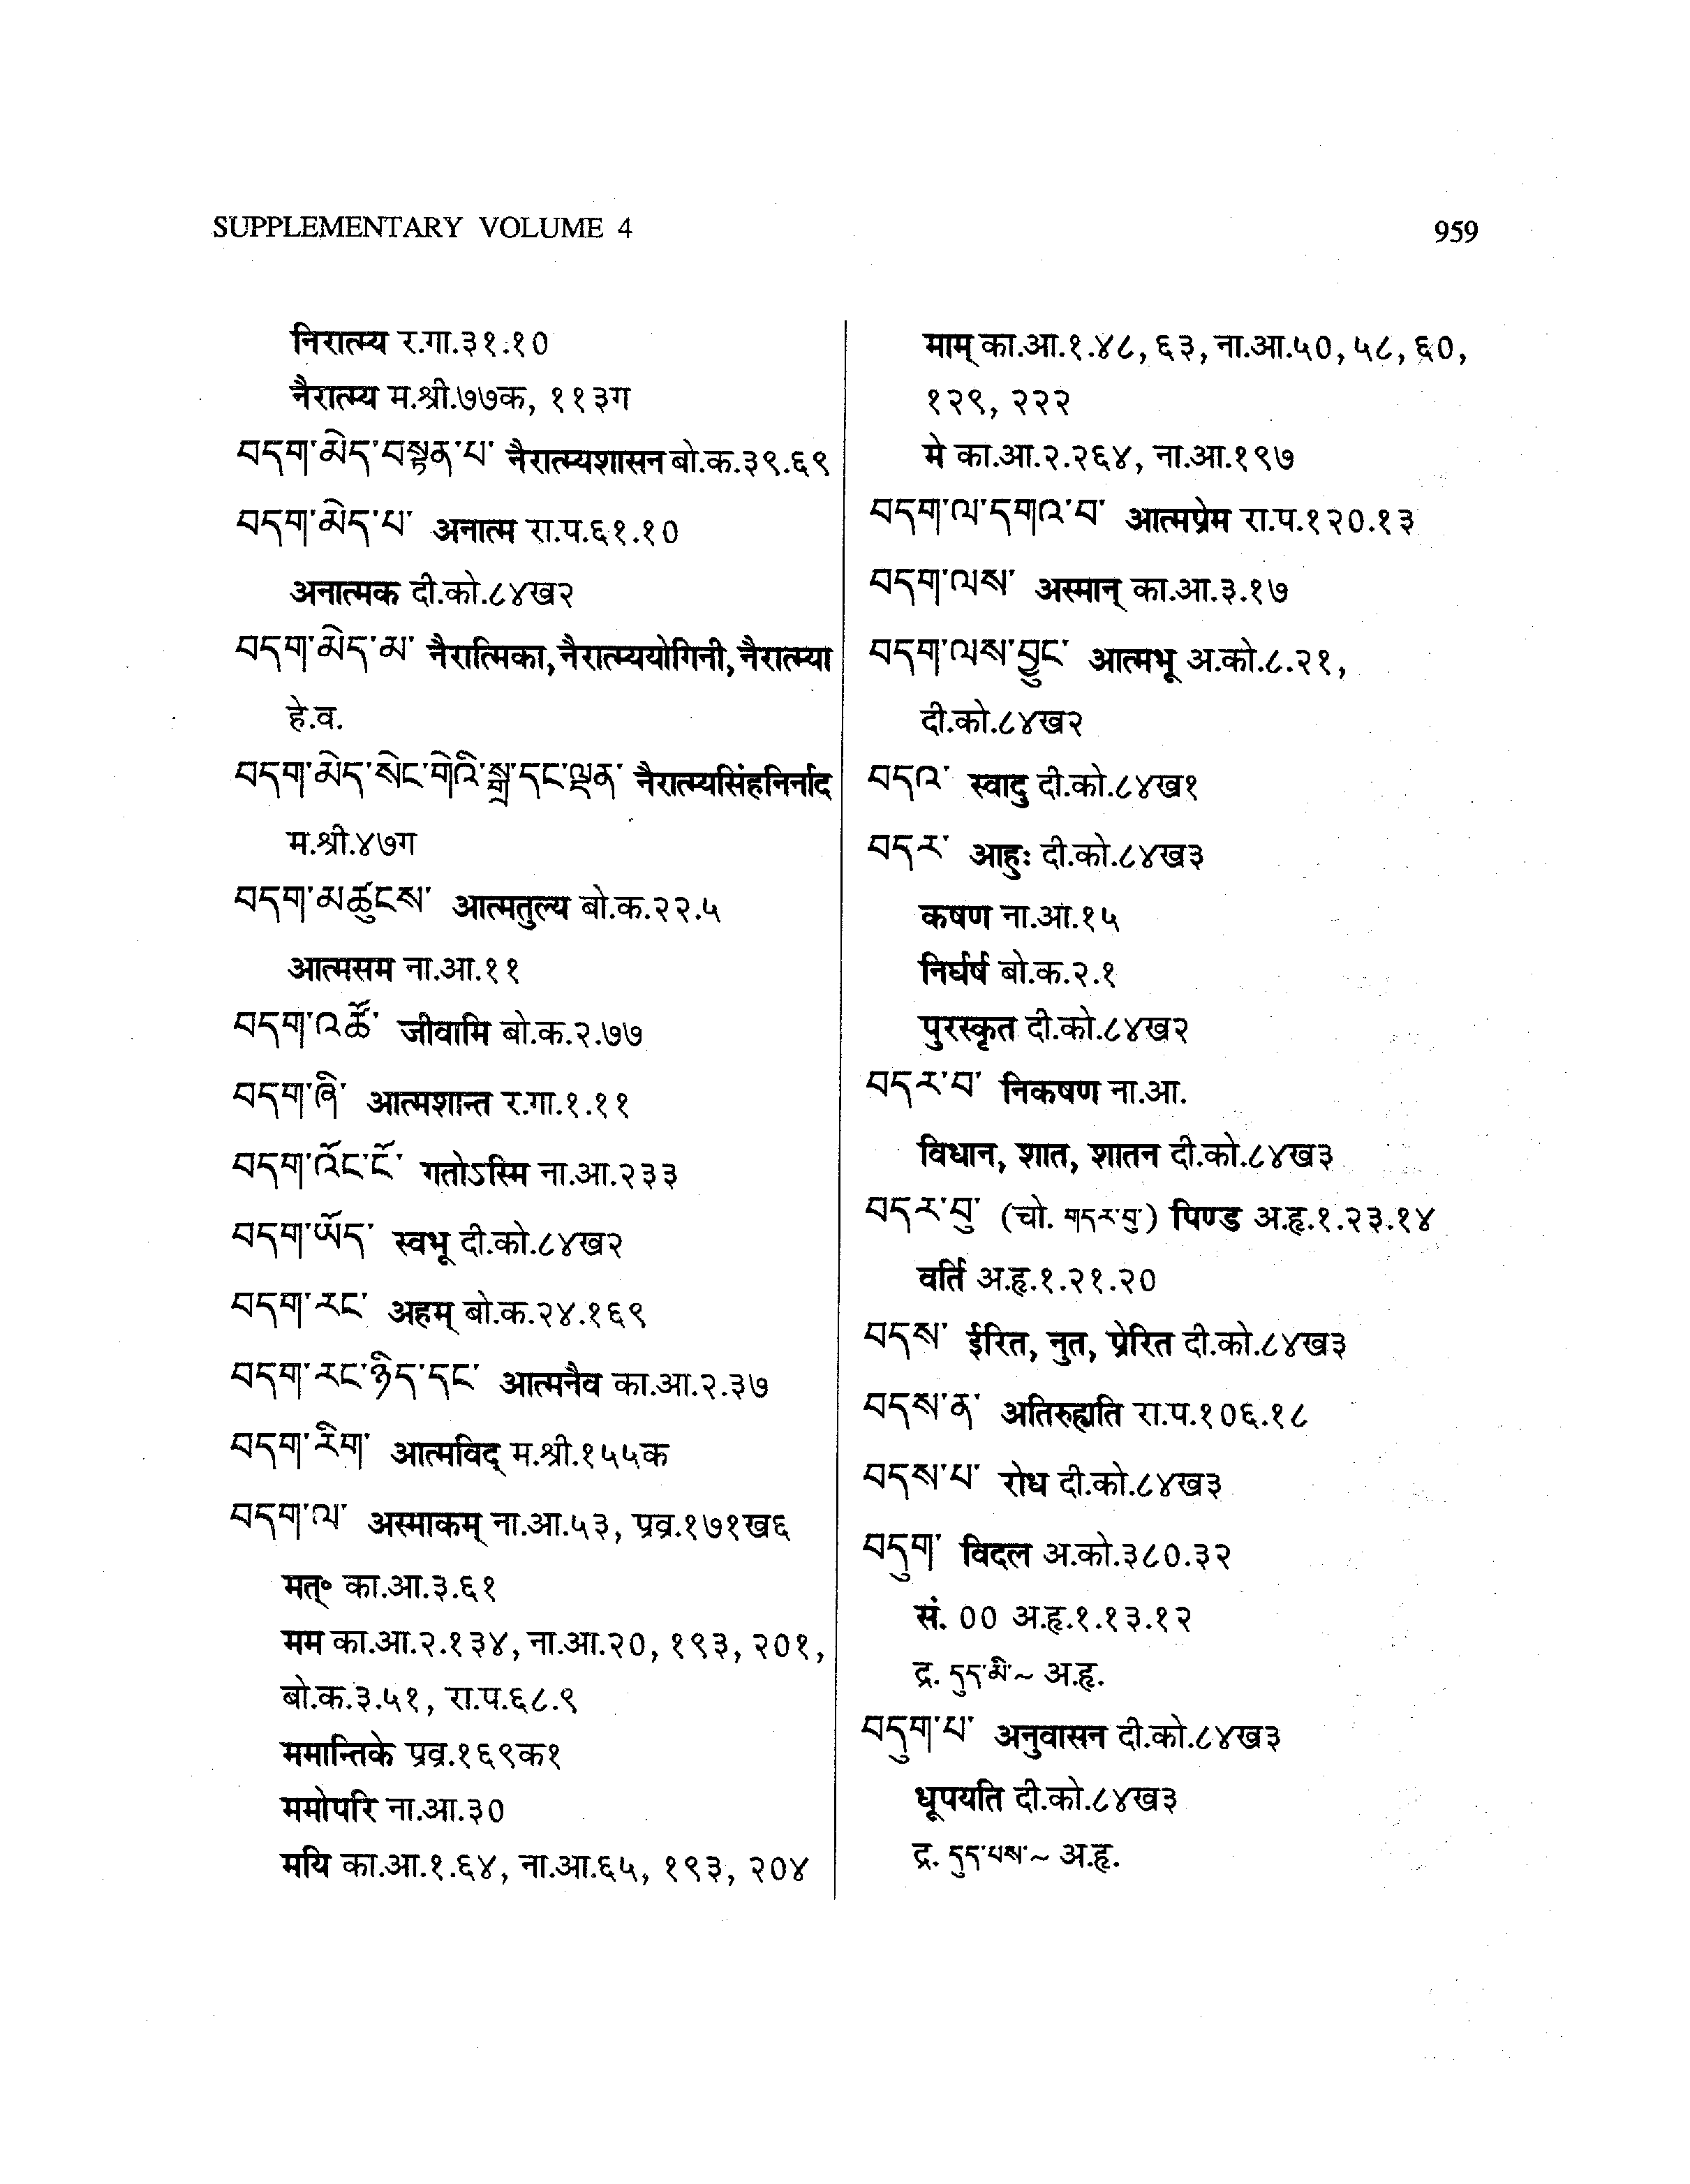 SUPPLEMENTARY VOLUME 4
959
निरात्म्य र.गा.३१.१०
नैरात्म्य म.श्री.७७क, ११३ग
བདག་མེད་བསྟན་པ་ नैरात्म्यशासन बो.क.३९.६९
བདག་མེད་པ་ अनात्म रा.प.६१.१०
अनात्मक दी.को.८४ख२
བདག་མེད་མ་ नैरात्मिका, नैरात्म्ययोगिनी, नैरात्म्या
हे.व.
བདག་མེད་སེང་གེའི་སྒྲ་དང་ལྡན་ नैरात्म्यसिंहनिर्नाद
म.श्री.४७ग
བདག་མཚུངས་ आत्मतुल्य बो.क.२२.५
आत्मसम ना.आ.११
བདག་འཚོ་ जीवामि बो.क.२.७७
བདག་ཞི་ आत्मशान्त र.गा.१.११
བདག་འོང་ངོ་ गतोऽस्मि ना.आ.२३३
བདག་ཡོད་ स्वभू दी.को.८४ख२
བདག་རང་ अहम् बो.क.२४.१६९
བདག་རང་ཉིད་དང་ आत्मनैव का.आ.२.३७
བདག་རིག་ आत्मविद् म.श्री.१५५क
བདག་ལ་ अस्माकम् ना.आ.५३, प्रव्र.१७१ख६
मत्॰ का.आ.३.६१
मम का.आ.२.१३४, ना.आ.२०, १९३, २०१,
बो.क.३.५१, रा.प.६८.९
ममान्तिके प्रव्र.१६९क१
ममोपरि ना.आ.३०
मयि का.आ.१.६४, ना.आ.६५, १९३, २०४
माम् का.आ.१.४८, ६३, ना.आ.५०, ५८, ६०,
१२९, २२२
मे का.आ.२.२६४, ना.आ.१९७
བདག་ལ་དགའ་བ་ आत्मप्रेम रा.प.१२०.१३
བདག་ལས་ अस्मान् का.आ.३.१७
བདག་ལས་བྱུང་ आत्मभू अ.को.८.२१,
दी.को.८४ख२
བདའ་ स्वादु दी.को.८४ख१
བདར་ आहुः दी.को.८४ख३
कषण ना.आ.१५
निर्घर्ष बो.क.२.१
पुरस्कृत दी.को.८४ख२
བདར་བ་ निकषण ना.आ.
विधान, शात, शातन दी.को.८४ख३
བདར་བུ་ (चो. གདར་བུ་) पिण्ड अ.हृ.१.२३.१४
वर्ति अ.हृ.१.२१.२०
བདས་ ईरित, नुत, प्रेरित दी.को.८४ख३
བདས་ན་ अतिरुह्यति रा.प.१०६.१८
བདས་པ་ रोध दी.को.८४ख३
བདུག་ विदल अ.को.३८०.३२
सं. ०० अ.हृ.१.१३.१२
द्र. དུད་མི་~ अ.हृ.
བདུག་པ་ अनुवासन दी.को.८४ख३
धूपयति दी.को.८४ख३
द्र. དུད་པས་~ अ.हृ.